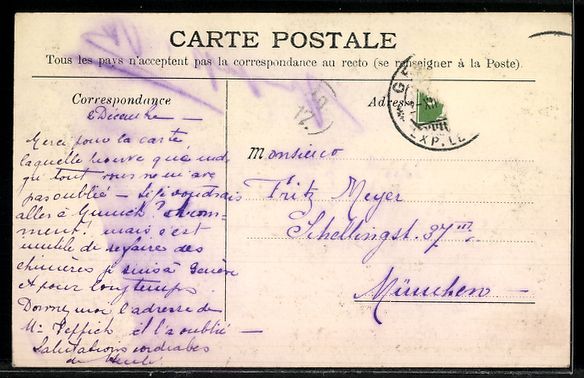 CARTE POSTALE
Tous les pays n'acceptent pas la correspondance au recto (se renseigner à la Poste).
Correspondance
Adresse
2 Décembre —
Merci pour la carte,
laquelle prouve que
qu'tout vous ne m'ave
pas oublié — si je voudrais
aller à Munich?
mais c'est
inutile de refaire des
chimères je suis à Genève
et pour longtemps.
Donnez moi l'adresse de
Mr il l'a oublié —
Salutations cordiales
Monsieur
Fritz Meyer
Schellingst. 37 III.
München —
EXP. LE